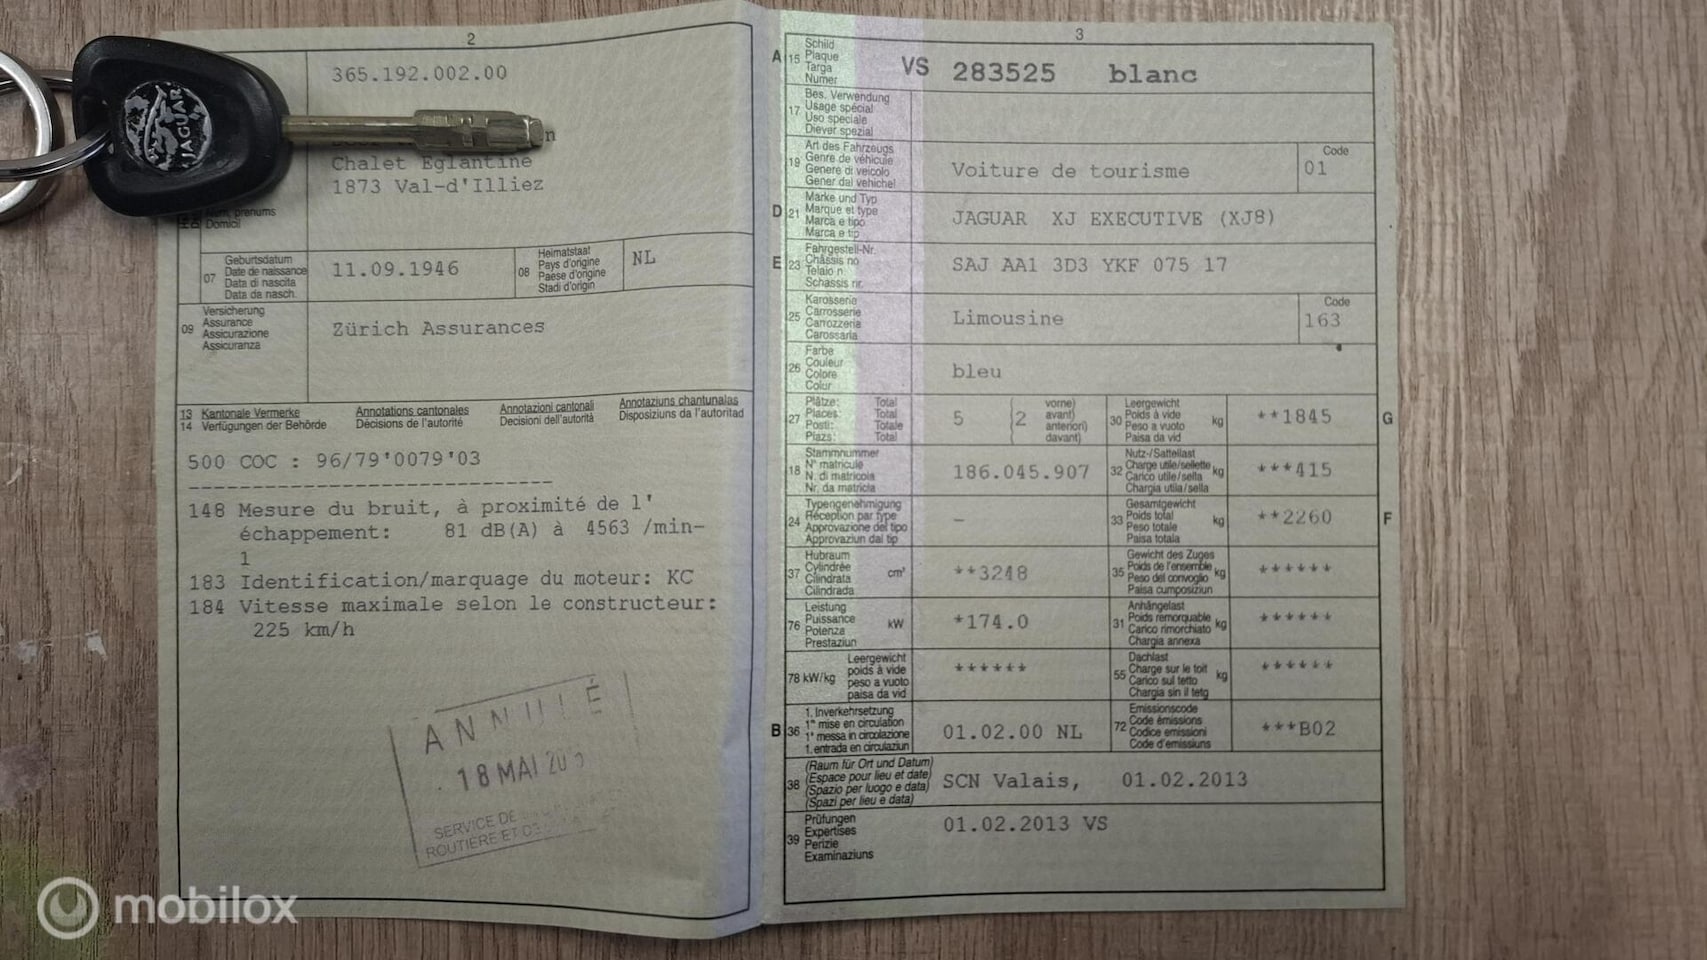 2
365.192.002.00
JAGUAR
n
Chalet Eglantine
1873 Val-d'Illiez
Nom, prenums
Domicil
07
Geburtsdatum
Date de naissance
Data di nascita
Data da nasch.
11.09.1946
08
Heimatstaat
Pays d'origine
Paese d'origine
Stadi d'origin
NL
09
Versicherung
Assurance
Assicurazione
Assicuranza
Zürich Assurances
13 Kantonale Vermerke
14 Verfügungen der Behörde
Annotations cantonales
Décisions de l'autorité
Annotazioni cantonali
Decisioni dell'autorità
Annotaziuns chantunalas
Disposiziuns da l'autoritad
500 COC : 96/79'0079'03
------------------------------
148 Mesure du bruit, à proximité de l'
échappement: 81 dB(A) à 4563 /min-
1
183 Identification/marquage du moteur: KC
184 Vitesse maximale selon le constructeur:
225 km/h
ANNULÉ
18 MAI
SERVICE DE
ROUTIÈRE ET
3
A 15
Schild
Plaque
Targa
Numer
VS 283525 blanc
17
Bes. Verwendung
Usage spécial
Uso speciale
Diever spezial
19
Art des Fahrzeugs
Genre de véhicule
Genere di veicolo
Gener dal vehichel
Voiture de tourisme
Code
01
D 21
Marke und Typ
Marque et type
Marca e tipo
Marca e tip
JAGUAR XJ EXECUTIVE (XJ8)
E 23
Fahrgestell-Nr.
Châssis no
Telaio n.
Schassis nr.
SAJ AA1 3D3 YKF 075 17
25
Karosserie
Carrosserie
Carrozzeria
Carossaria
Limousine
Code
163
26
Farbe
Couleur
Colore
Colur
bleu
27
Plätze: Total
Places: Total
Posti: Totale
Plazs: Total
5
2
vorne)
avant)
anteriori)
davant)
30
Leergewicht
Poids à vide
Peso a vuoto
Paisa da vid
kg
**1845
G
18
Stammnummer
N° matricule
N. di matricola
Nr. da matricla
186.045.907
32
Nutz-/Sattellast
Charge utile/sellette
Carico utile/sella
Chargia utila/sella
kg
***415
24
Typengenehmigung
Réception par type
Approvazione del tipo
Approvaziun dal tip
-
33
Gesamtgewicht
Poids total
Peso totale
Paisa totala
kg
**2260
F
37
Hubraum
Cylindrée
Cilindrata
Cilindrada
cm³
**3248
35
Gewicht des Zuges
Poids de l'ensemble
Peso del convoglio
Paisa cumposiziun
kg
******
76
Leistung
Puissance
Potenza
Prestaziun
kW
*174.0
31
Anhängelast
Poids remorquable
Carico rimorchiato
Chargia annexa
kg
******
78 kW/kg
Leergewicht
poids à vide
peso a vuoto
paisa da vid
******
55
Dachlast
Charge sur le toit
Carico sul tetto
Chargia sin il tetg
kg
******
B 36
1. Inverkehrsetzung
1re mise en circulation
1a messa in circolazione
1. entrada en circulaziun
01.02.00 NL
72
Emissionscode
Code émissions
Codice emissioni
Code d'emissiuns
***B02
38
(Raum für Ort und Datum)
(Espace pour lieu et date)
(Spazio per luogo e data)
(Spazi per lieu e data)
SCN Valais, 01.02.2013
39
Prüfungen
Expertises
Perizie
Examinaziuns
01.02.2013 VS
mobilox